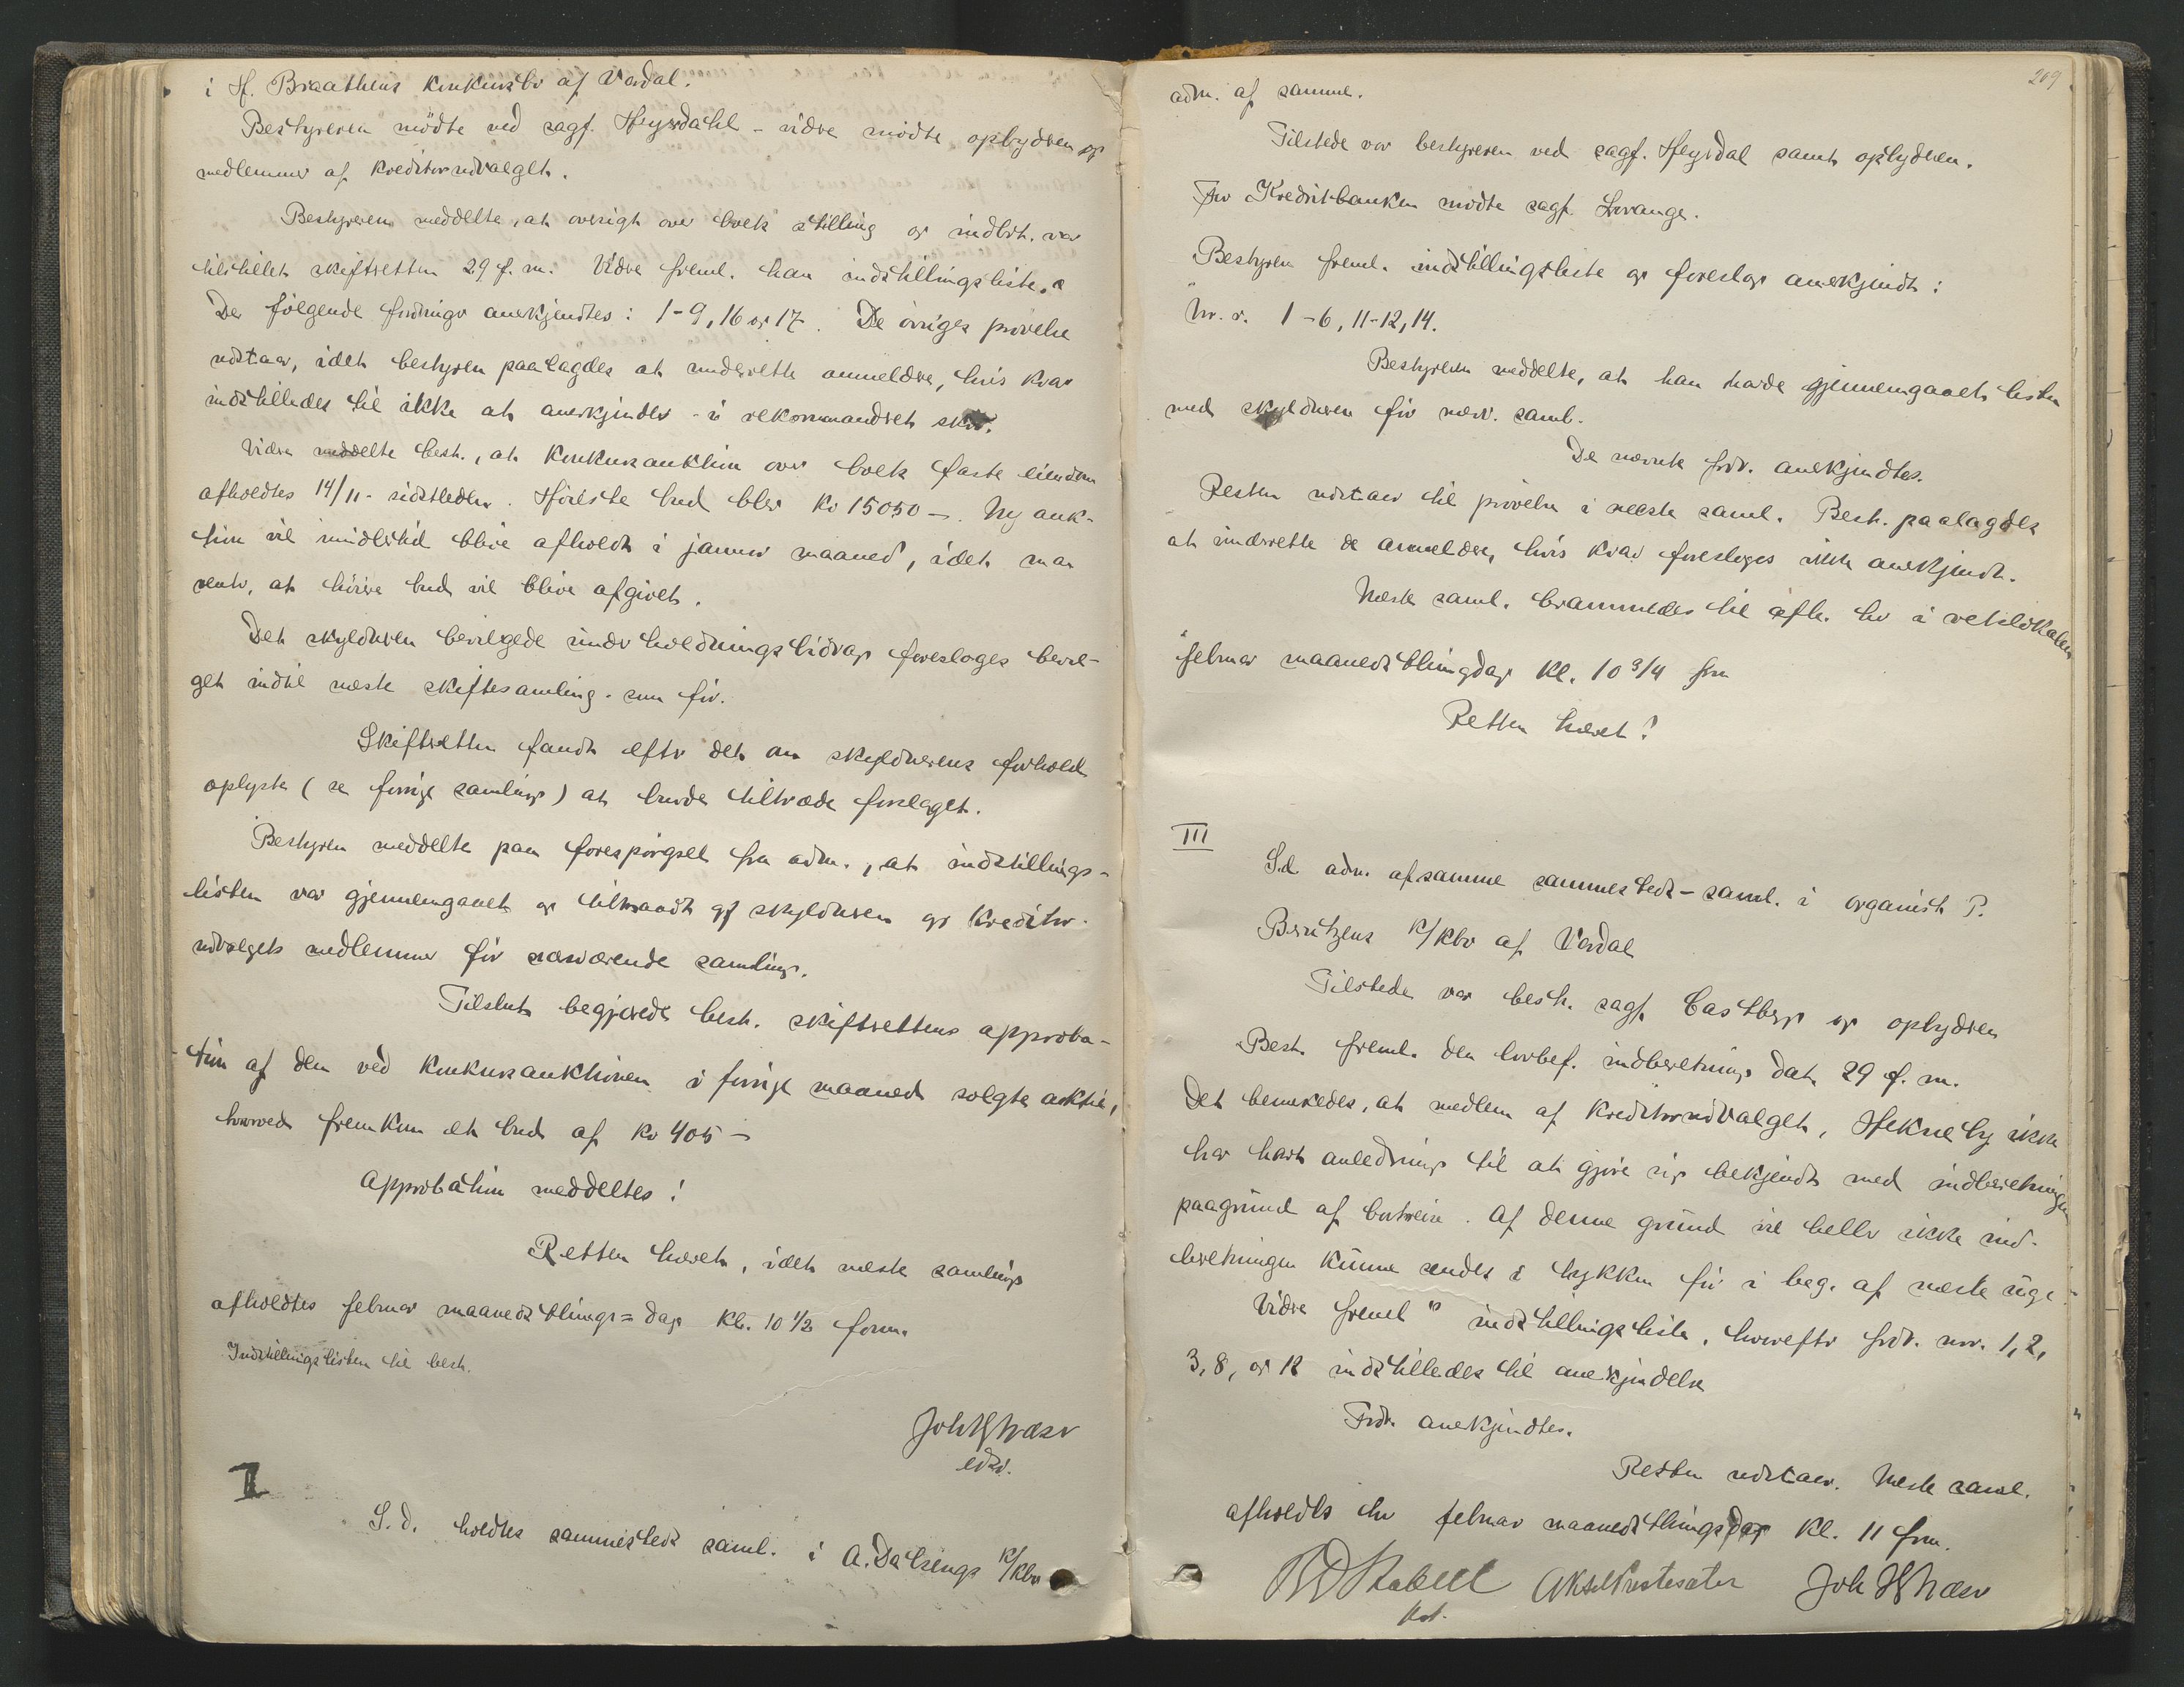 i H. Braathens konkursbo af Verdal.
Bestyreren mödte ved sagf. Heyerdahl - videre mödte opbyderen og
medlemmer af kreditorudvalget.
Bestyreren meddelte, at oversigt over boets stilling og indbr. var
tilstillet skifteretten 29 f. m. Videre freml. han indstillingsliste.
De følgende fordringer anerkjendtes: 1-9, 16 og 17. De övriges prövelse
udstaar, idet bestyren paalagdes at underrette anmeldere, hvis krav
indstilledes til ikke at anerkjendes - i rekommanderet skr.
Videre meddelte best., at konkursauktion over boets faste eiendom
afholdtes 14/11 - sidstleden. Höieste bud blev kr 15050 -. Ny auk-
tion vil imidlertid blive afholdt i januar maaned, idet man
venter, at höiere bud vil blive afgivet.
Det skyldneren bevilgede underholdningsbidrag foresloges bevil-
get indtil næste skiftesamling. som för.
Skifteretten fandt efter det om skyldnerens forhold
oplyste (se forrige samling) at burde tiltræde forslaget.
Bestyren meddelte paa forespörgsel fra adm., at indstillings-
listen var gjennemgaaet og tiltraadt af skyldneren og kreditor-
udvalgets medlemmer för nærværende samling.
Tilslut begjærede best. skifterettens approba-
tion af den ved konkursauktionen i forrige maaned solgte aktie,
hvorved fremkom et bud af kr 405 -
Approbation meddeltes!
Retten hævet, idet næste samling
afholdtes februar maanedsthings=dag kl. 10 1/2 form.
Indstillingslisten til best.
Joh H Næser
edsv.
II
S. d. holdtes sammesteds saml. i A. Dalsengs k/kbo
269
adm. af samme.
Tilstede var bestyreren ved sagf. Heyrdal samt opbyderen.
For Kreditbanken mödte sagf. Lorange.
Bestyren freml. indstillingsliste og foreslog anerkjendt:
Nr. r. 1-6, 11-12, 14.
Bestyreren meddelte, at han havde gjennemgaaet listen
med skyldneren för nærv. saml.
De nævnte fordr. anerkjendtes.
Resten udstaar til prövelse i næste saml. Best. paalagdes
at underrette de anmeldere, hvis krav foresloges ikke anerkjendt.
Næste saml. berammedes til afh. her i retslokalet
februar maanedsthingdag kl. 10 3/4 fm
Retten hævet!
III
S.d. adm. af samme sammesteds - saml. i organist P.
Brutzens k/kbo af Verdal
Tilstede var best. sagf. Castberg og opbyderen
Best. freml. den lovbef. indberetning dat. 29 f. m.
Det bemerkedes, at medlem af kreditorudvalget, Hekneby ikke
har havt anledning til at gjöre sig bekjendt med indberetningen
paagrund af bortreise. Af denne grund vil heller ikke ind-
beretningen kunne sendes i trykken för i beg. af næste uge.
Videre freml. indstillingsliste, hvorefter fordr. nr. 1, 2,
3, 8, og 12 indstilledes til anerkjendelse
Fordr. anerkjendtes.
Resten udstaar. Næste saml.
afholdes her februar maanedsthingsdag kl. 11 fm.
Aksel Prestesater Joh H Næser